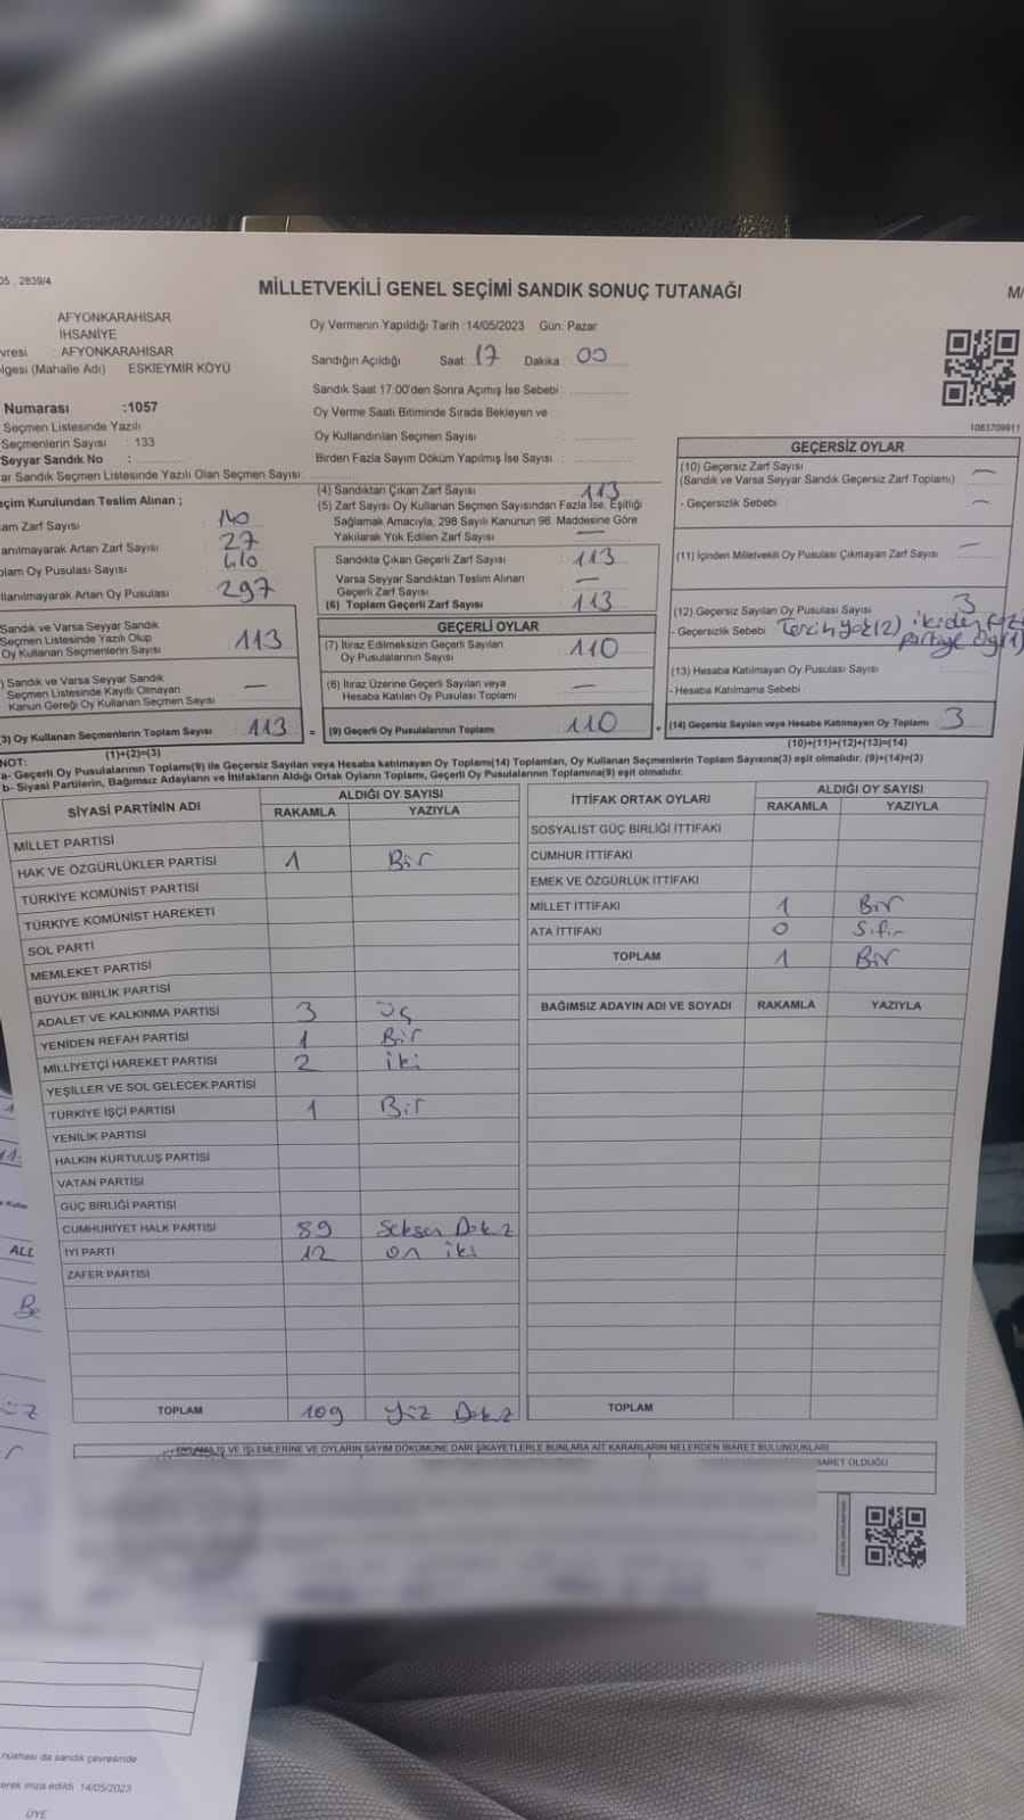 05 . 2839/4
MİLLETVEKİLİ GENEL SEÇİMİ SANDIK SONUÇ TUTANAĞI
M/
AFYONKARAHİSAR
İHSANİYE
vresi AFYONKARAHİSAR
lgesi (Mahalle Adı) ESKİEYMİR KÖYÜ
Numarası :1057
Seçmen Listesinde Yazılı
Seçmenlerin Sayısı : 133
Seyyar Sandık No :
ar Sandık Seçmen Listesinde Yazılı Olan Seçmen Sayısı
Oy Vermenin Yapıldığı Tarih :14/05/2023 Gün: Pazar
Sandığın Açıldığı Saat: 17 Dakika : 00
Sandık Saat 17.00'den Sonra Açımış İse Sebebi :
Oy Verme Saati Bitiminde Sırada Bekleyen ve
Oy Kullandırılan Seçmen Sayısı
Birden Fazla Sayım Döküm Yapılmış İse Sayısı :
1063709911
eçim Kurulundan Teslim Alınan ;
am Zarf Sayısı 140
anılmayarak Artan Zarf Sayısı 27
plam Oy Pusulası Sayısı 410
llanılmayarak Artan Oy Pusulası 297
Sandık ve Varsa Seyyar Sandık
Seçmen Listesinde Yazılı Olup
Oy Kullanan Seçmenlerin Sayısı 113
) Sandık ve Varsa Seyyar Sandık
Seçmen Listesinde Kayıtlı Olmayan
Kanun Gereği Oy Kullanan Seçmen Sayısı —
3) Oy Kullanan Seçmenlerin Toplam Sayısı 113
(1)+(2)=(3)
(4) Sandıktan Çıkan Zarf Sayısı : 113
(5) Zarf Sayısı Oy Kullanan Seçmen Sayısından Fazla İse, Eşitliği
Sağlamak Amacıyla, 298 Sayılı Kanunun 98. Maddesine Göre
Yakılarak Yok Edilen Zarf Sayısı —
Sandıkta Çıkan Geçerli Zarf Sayısı : 113
Varsa Seyyar Sandıktan Teslim Alınan
Geçerli Zarf Sayısı : —
(6) Toplam Geçerli Zarf Sayısı : 113
GEÇERLİ OYLAR
(7) İtiraz Edilmeksizin Geçerli Sayılan
Oy Pusulalarının Sayısı : 110
(8) İtiraz Üzerine Geçerli Sayılan veya
Hesaba Katılan Oy Pusulası Toplamı : —
= (9) Geçerli Oy Pusulalarının Toplamı : 110
GEÇERSİZ OYLAR
(10) Geçersiz Zarf Sayısı —
(Sandık ve Varsa Seyyar Sandık Geçersiz Zarf Toplamı)
- Geçersizlik Sebebi : —
(11) İçinden Milletvekili Oy Pusulası Çıkmayan Zarf Sayısı : —
(12) Geçersiz Sayılan Oy Pusulası Sayısı : 3
- Geçersizlik Sebebi Tercih yok (2) ikiden
partiye oy (1)
(13) Hesaba Katılmayan Oy Pusulası Sayısı
- Hesaba Katılmama Sebebi
+ (14) Geçersiz Sayılan veya Hesaba Katılmayan Oy Toplamı : 3
(10)+(11)+(12)+(13)=(14)
NOT:
a- Geçerli Oy Pusulalarının Toplamı(9) ile Geçersiz Sayılan veya Hesaba katılmayan Oy Toplamı(14) Toplamları, Oy Kullanan Seçmenlerin Toplam Sayısına(3) eşit olmalıdır. (9)+(14)=(3)
b- Siyasi Partilerin, Bağımsız Adayların ve İttifakların Aldığı Ortak Oyların Toplamı, Geçerli Oy Pusulalarının Toplamına(9) eşit olmalıdır.
SİYASİ PARTİNİN ADI ALDIĞI OY SAYISI
RAKAMLA YAZIYLA
MİLLET PARTİSİ
HAK VE ÖZGÜRLÜKLER PARTİSİ 1 Bir
TÜRKİYE KOMÜNİST PARTİSİ
TÜRKİYE KOMÜNİST HAREKETİ
SOL PARTİ
MEMLEKET PARTİSİ
BÜYÜK BİRLİK PARTİSİ
ADALET VE KALKINMA PARTİSİ 3 üç
YENİDEN REFAH PARTİSİ 1 Bir
MİLLİYETÇİ HAREKET PARTİSİ 2 iki
YEŞİLLER VE SOL GELECEK PARTİSİ
TÜRKİYE İŞÇİ PARTİSİ 1 Bir
YENİLİK PARTİSİ
HALKIN KURTULUŞ PARTİSİ
VATAN PARTİSİ
GÜÇ BİRLİĞİ PARTİSİ
CUMHURİYET HALK PARTİSİ 89 Seksen Dokuz
İYİ PARTİ 12 on iki
ZAFER PARTİSİ
TOPLAM 109 Yüz Dokuz
İTTİFAK ORTAK OYLARI ALDIĞI OY SAYISI
RAKAMLA YAZIYLA
SOSYALİST GÜÇ BİRLİĞİ İTTİFAKI
CUMHUR İTTİFAKI
EMEK VE ÖZGÜRLÜK İTTİFAKI
MİLLET İTTİFAKI 1 Bir
ATA İTTİFAKI 0 Sıfır
TOPLAM 1 Bir
BAĞIMSIZ ADAYIN ADI VE SOYADI RAKAMLA YAZIYLA
TOPLAM
VE İŞLEMLERİNE VE OYLARIN SAYIM DÖKÜMÜNE DAİR ŞİKAYETLERLE BUNLARA AİT KARARLARIN NELERDEN İBARET BULUNDUKLARI
BARET OLDUĞU
ALL
nüshası da sandık çevresinde
erek imza edildi. 14/05/2023
ÜYE